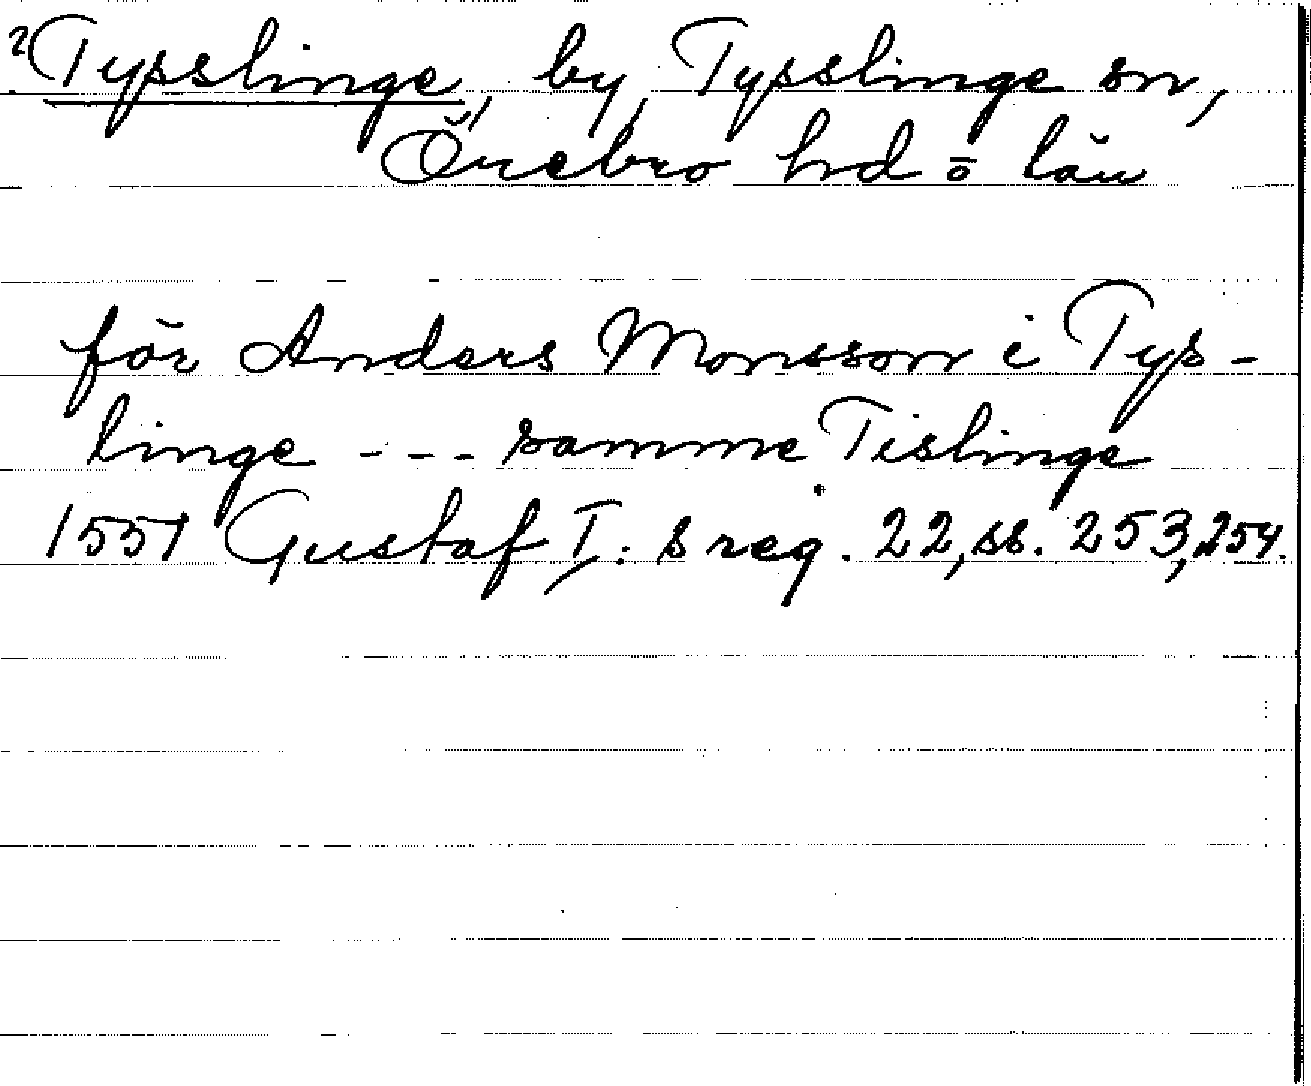 ?Typslinge, by, Typslinge sn,
Örebro hd o län
för Anders Monsson i Typ-
linge --- samme Tislinge
1551 Gustaf I:s reg. 22, ss. 253, 254.